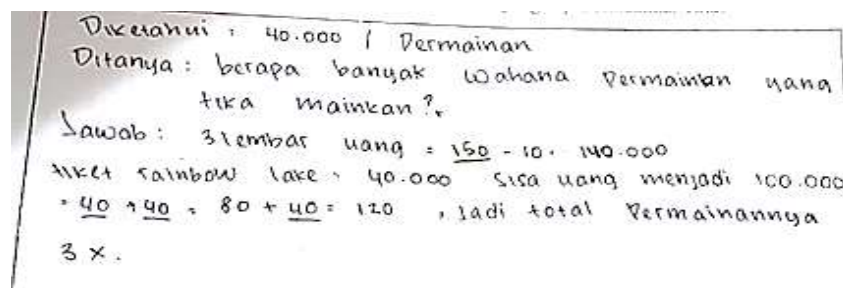 Diketahui : 40.000 / Permainan
Ditanya : berapa banyak wahana permainan yang
tika mainkan ?.
Jawab : 3 lembar uang = 150 - 10 = 140.000
tiket rainbow lake = 40.000 sisa uang menjadi 100.000
= 40 + 40 = 80 + 40 = 120 , jadi total Permainannya
3 x .